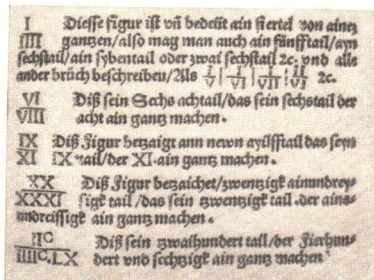 I Diesse figur ist vñ bedeüt ain fiertel von aineꝫ
IIII gantzen/also mag man auch ain fünfftail/ayn
sechstail/ain sybentail oder zwai sechstail ꝛc. vnd alle
ander brüch beschreiben/Als I/V | I/VI | I/VII | II/VI ꝛc.
VI Diß sein Sechs achtail/das sein sechstail der
VIII acht ain gantz machen.
IX Diß Figur betzaigt ann newn ayilfftail das seyn
XI IX tail/der XI ain gantz machen.
XX Diß Figur betzaichet/zwentzigk ainundrey-
XXXI sigk tail/das sein zwentzigk tail .der ains-
undreissigk ain gantz machen.
IIC Diß sein zwaihundert tail/der Fierhun-
IIIIC.LX dert vnd sechtzigk ain gantz machen